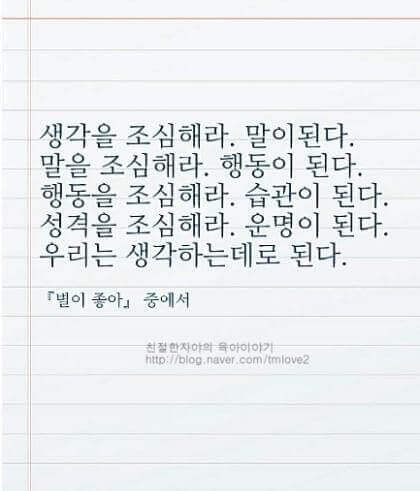 생각을 조심해라. 말이된다.
말을 조심해라. 행동이 된다.
행동을 조심해라. 습관이 된다.
성격을 조심해라. 운명이 된다.
우리는 생각하는데로 된다.
『별이 좋아』 중에서
친절한자야의 육아이야기
http://blog.naver.com/tmlove2